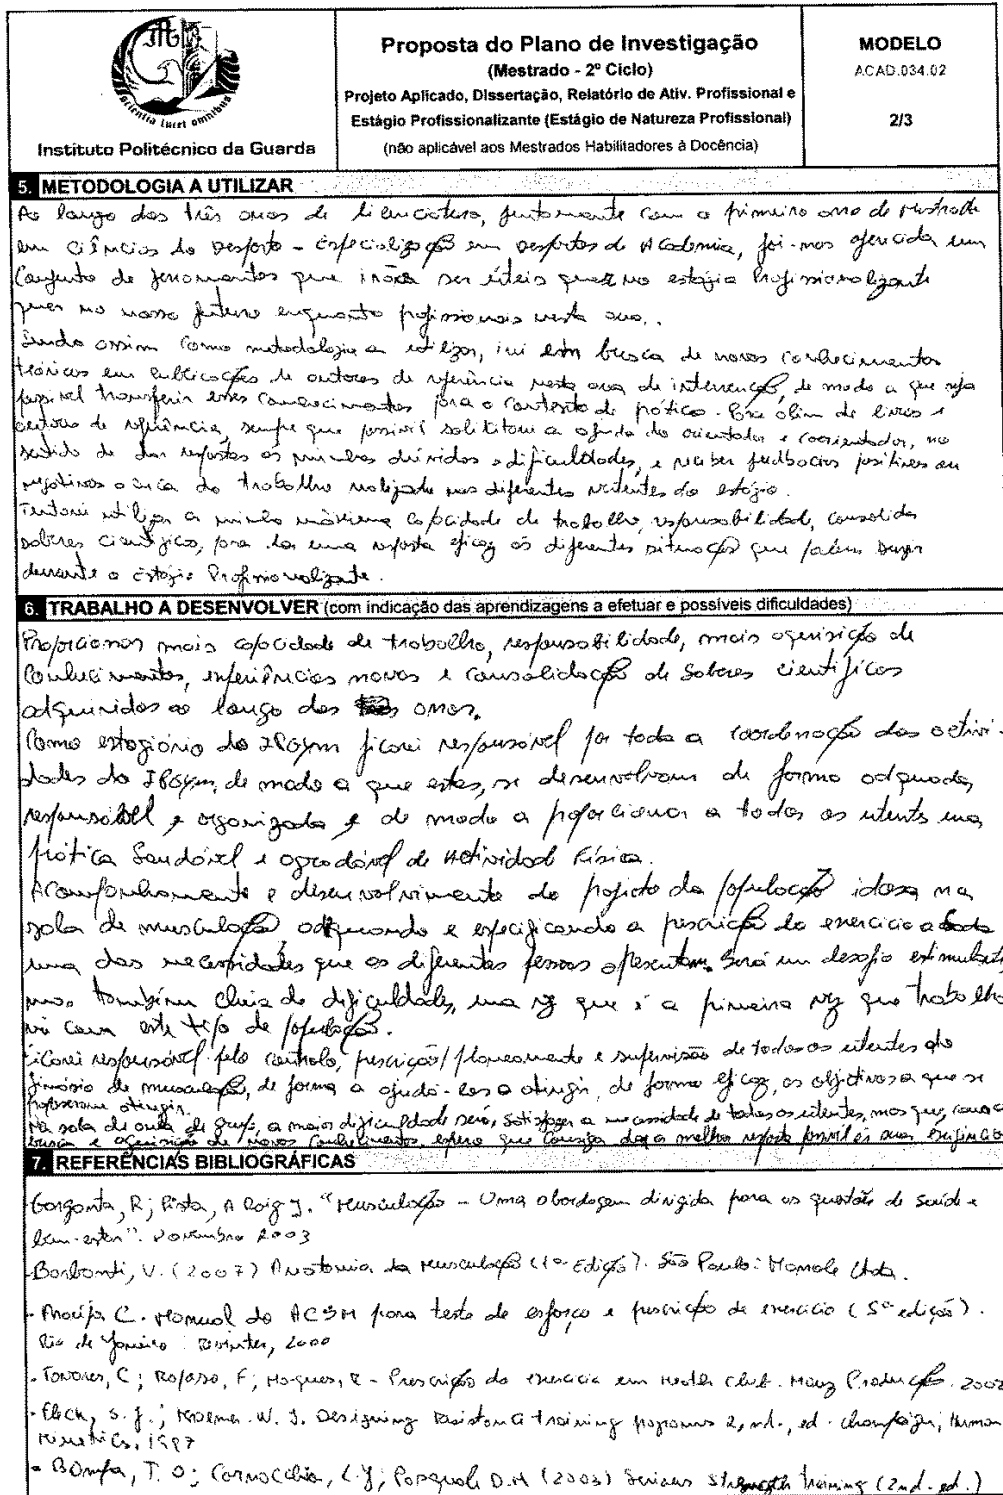 Scientia lucet omnibus
Instituto Politécnico da Guarda
Proposta do Plano de Investigação
(Mestrado - 2º Ciclo)
Projeto Aplicado, Dissertação, Relatório de Ativ. Profissional e
Estágio Profissionalizante (Estágio de Natureza Profissional)
(não aplicável aos Mestrados Habilitadores à Docência)
MODELO
ACAD.034.02
2/3
5. METODOLOGIA A UTILIZAR
Ao longo dos três anos de licenciatura, juntamente com o primeiro ano de Mestrado
em Ciências do Desporto - Especialização em Desportos de Academia, foi-nos oferecida um
conjunto de ferramentas que irão ser úteis quer no estágio Profissionalizante
quer no nosso futuro enquanto profissionais nesta área.
Sendo assim como metodologia a utilizar, irei em busca de novos conhecimentos
teóricos em publicações de autores de referência nesta área de intervenção, de modo a que seja
possível transferir esses conhecimentos para o contexto de prático. Para além de livros e
autores de referência, sempre que possível solicitarei a ajuda do orientador e coorientador, no
sentido de dar respostas às minhas dúvidas e dificuldades, e receber feedbacks positivos ou
negativos acerca do trabalho realizado nas diferentes vertentes do estágio.
Tentarei utilizar a minha máxima capacidade de trabalho, responsabilidade, consolidar
saberes científico, para dar uma resposta eficaz às diferentes situações que podem surgir
durante o Estágio Profissionalizante.
6. TRABALHO A DESENVOLVER (com indicação das aprendizagens a efetuar e possíveis dificuldades)
Proporcionar mais capacidade de trabalho, responsabilidade, mais aquisição de
conhecimentos, experiências novas e consolidação de Saberes científicos
adquiridos ao longo dos anos.
Como estagiário do IPGym ficarei responsável por toda a coordenação das activi-
dades do IPGym, de modo a que estes, se desenvolvam de forma adquada,
responsável e organizada e de modo a proporcionar a todos os utents uma
prática Saudável e agradável de Actividade Física.
Acompanhamento e desenvolvimento do projeto da população idosa na
sala de musculação adequando e especificando a prescrição do exercicio a cada
uma das necessidades que as diferentes pessoas apresentam. Será um desafio estimulante,
mas também cheia de dificuldades, uma vez que é a primeira vez que trabalha
rei com este tipo de população.
Ficarei responsável pelo controlo, prescrição/planeamento e supervisão de todos os utentes do
ginásio de musculação, de forma a ajudá-los a atingir, de forma eficaz, os objetivos a que se
propuseram atingir.
Na sala de aula de grupo, a maior dificuldade será, satisfazer a necessidade de todos os utentes, mas que, com a
busca e aquisição de novos conhecimentos, espero que consiga dar a melhor resposta possível às suas exigências
7. REFERÊNCIAS BIBLIOGRÁFICAS
-Garganta, R; Prista, A Roig J. "Musculação - Uma abordagem dirigida para as questões de saúde e
bem-estar". Novembro 2003
-Barbanti, V. (2007) Anatomia da Musculação (1ª Edição). São Paulo: Manole Ltda.
- Araújo, C. Manual do ACSM para teste de esforço e prescrição de exercício (5ª edição).
Rio de Janeiro: Revinter, 2000
- Tavares, C; Raposo, F; Marques, R - Prescrição do exercicio em Health Club. Manz Produções. 2003
- Fleck, S. J.; Kraemer. W. J. Designing Resistance training programs 2, nd., ed. champaign, Human
Kinetics, 1997
- Bompa, T. O; Cornacchia, L. J; Pasquale D.M (2003) Serious Strength training (2nd. ed.)